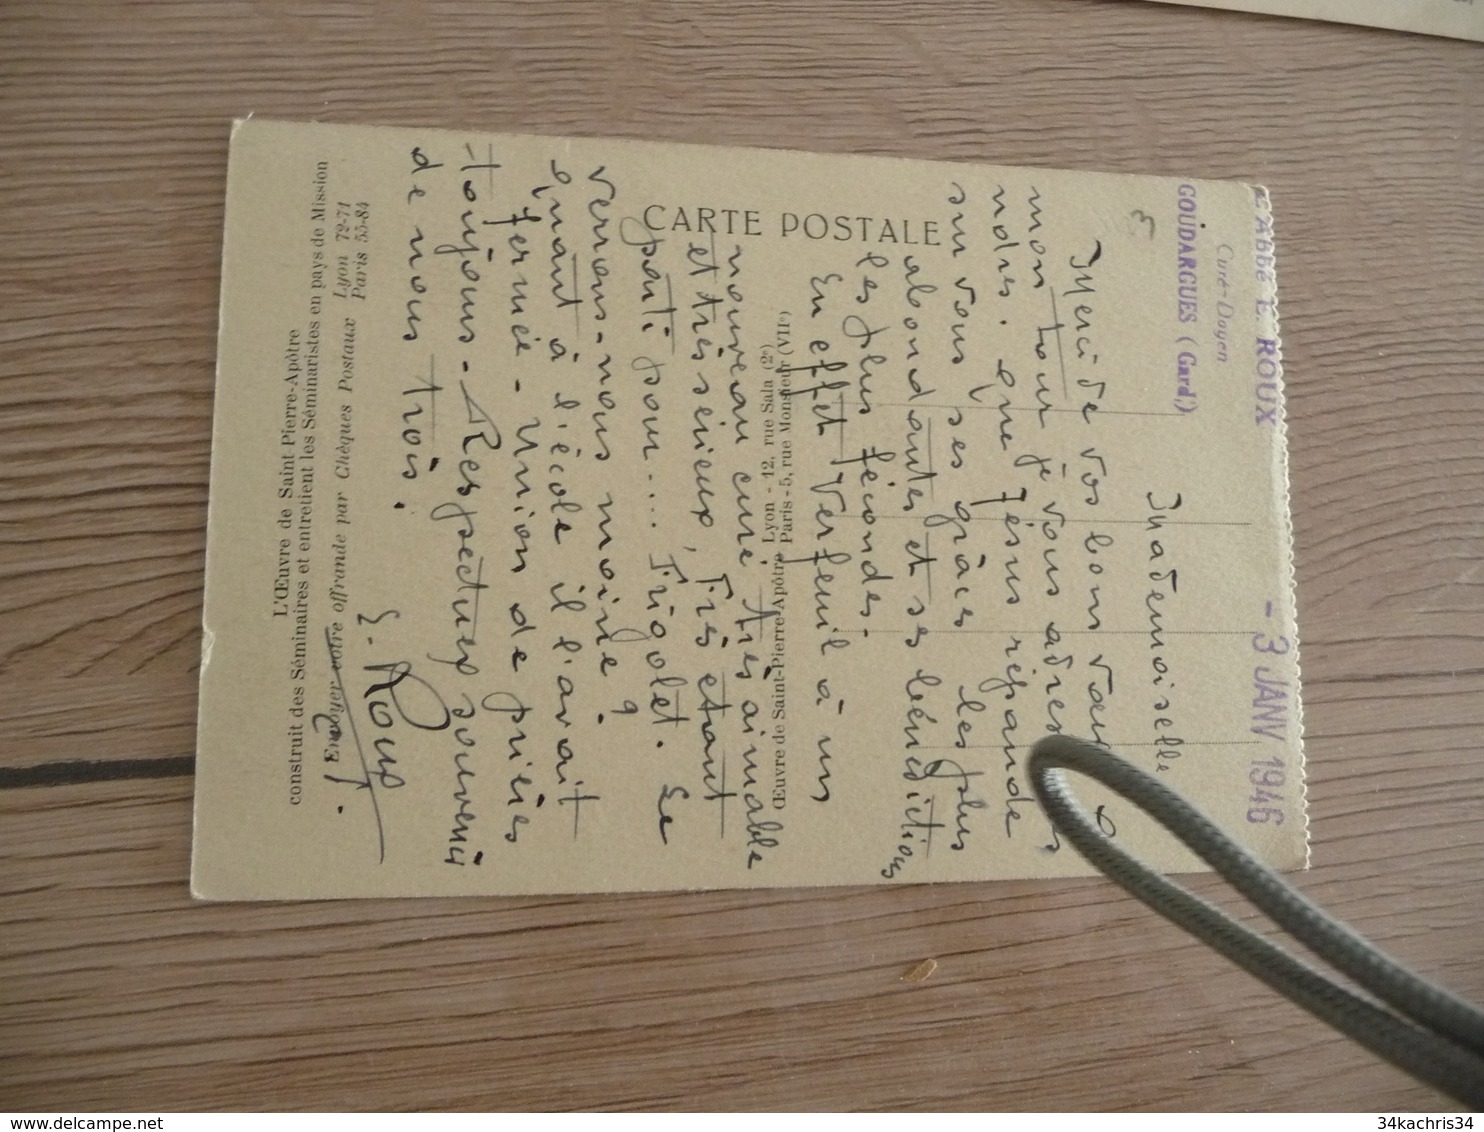 L'Abbé E. ROUX
Curé-Doyen
GOUDARGUES (Gard)
- 3 JANV 1946
3
Mademoiselle
Merci de vos bons vœux &
mon tour je vous adresse
nôtres. que Jésus répande
sur vous ses grâces les plus
abondantes et ses bénédictions
les plus fécondes.
En effet Verfeuil à un
nouveau curé très aimable
et très sérieux, Très étant
parti pour... Frigolet. Le
verrons-nous moine ?
quant à l'école il l'avait
fermée - Union de prières
toujours - Respectueux souvenir
de nous trois.
E. Roux
CARTE POSTALE
Œuvre de Saint-Pierre-Apôtre
Lyon - 12, rue Sala (2e)
Paris - 5, rue Monsieur (VIIe)
L'Œuvre de Saint Pierre-Apôtre
construit des Séminaires et entretient les Séminaristes en pays de Mission
Envoyer votre offrande par Chèques Postaux
Lyon 72-71
Paris 55-84
34kachris34